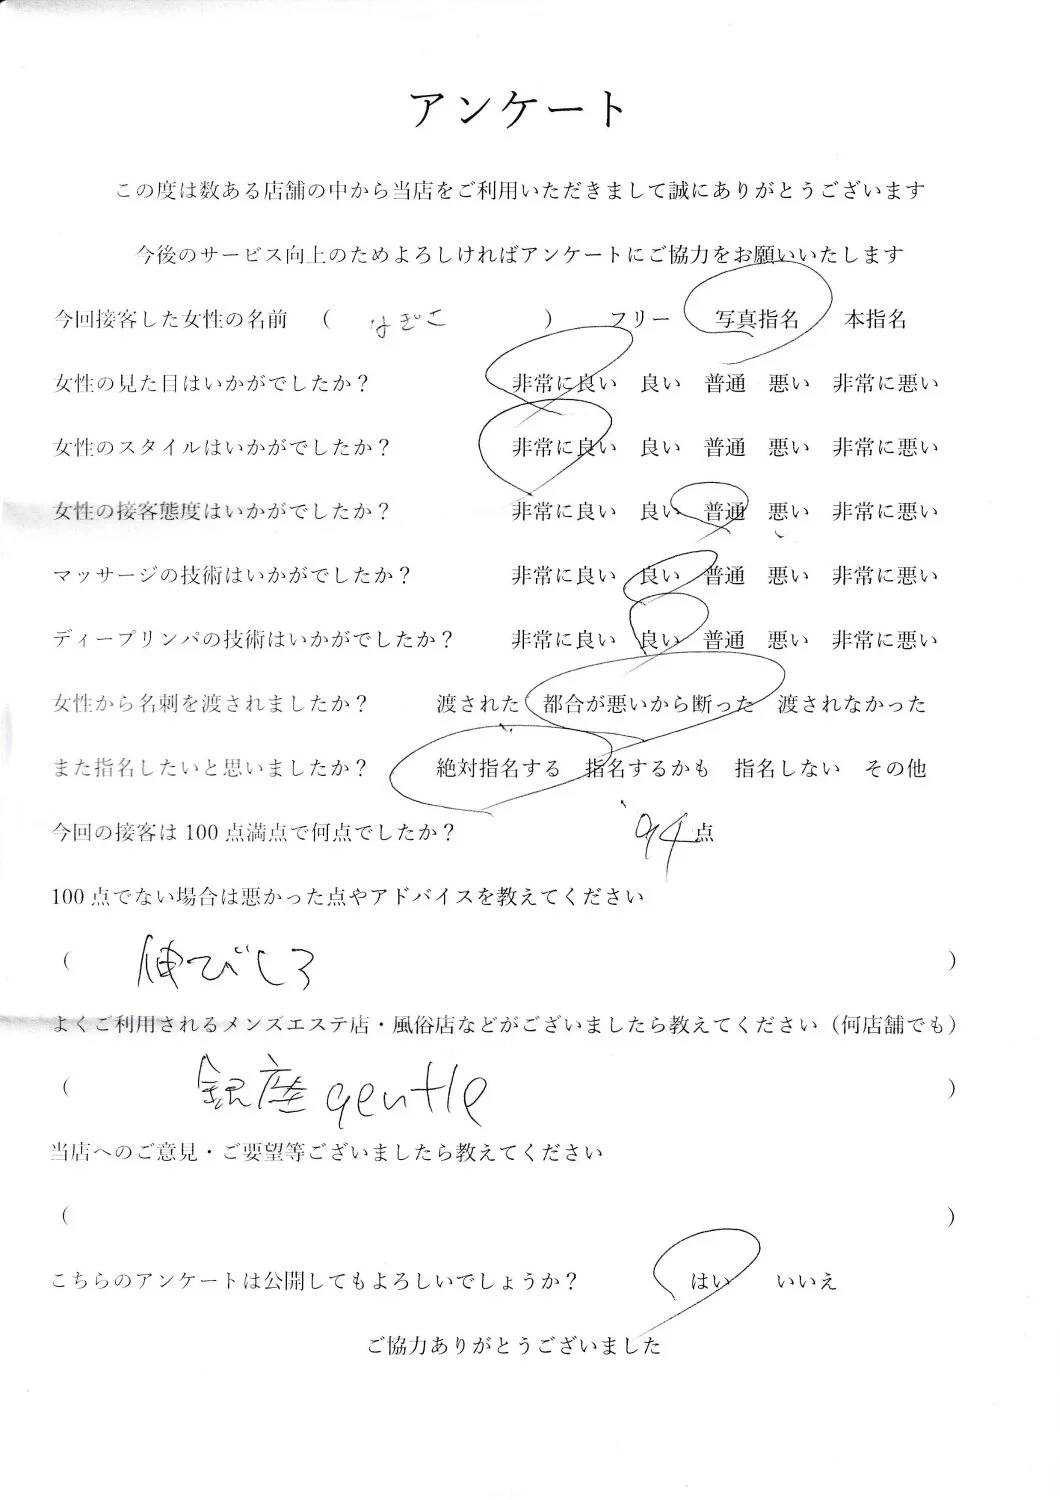 アンケート
この度は数ある店舗の中から当店をご利用いただきまして誠にありがとうございます
今後のサービス向上のためよろしければアンケートにご協力をお願いいたします
今回接客した女性の名前 ( なぎさ ) フリー 写真指名 本指名
女性の見た目はいかがでしたか? 非常に良い 良い 普通 悪い 非常に悪い
女性のスタイルはいかがでしたか? 非常に良い 良い 普通 悪い 非常に悪い
女性の接客態度はいかがでしたか? 非常に良い 良い 普通 悪い 非常に悪い
マッサージの技術はいかがでしたか? 非常に良い 良い 普通 悪い 非常に悪い
ディープリンパの技術はいかがでしたか? 非常に良い 良い 普通 悪い 非常に悪い
女性から名刺を渡されましたか? 渡された 都合が悪いから断った 渡されなかった
また指名したいと思いましたか? 絶対指名する 指名するかも 指名しない その他
今回の接客は 100 点満点で何点でしたか? 94 点
100 点でない場合は悪かった点やアドバイスを教えてください
( 伸びしろ )
よくご利用されるメンズエステ店・風俗店などがございましたら教えてください(何店舗でも)
( 銀座 gentle )
当店へのご意見・ご要望等ございましたら教えてください
( )
こちらのアンケートは公開してもよろしいでしょうか? はい いいえ
ご協力ありがとうございました